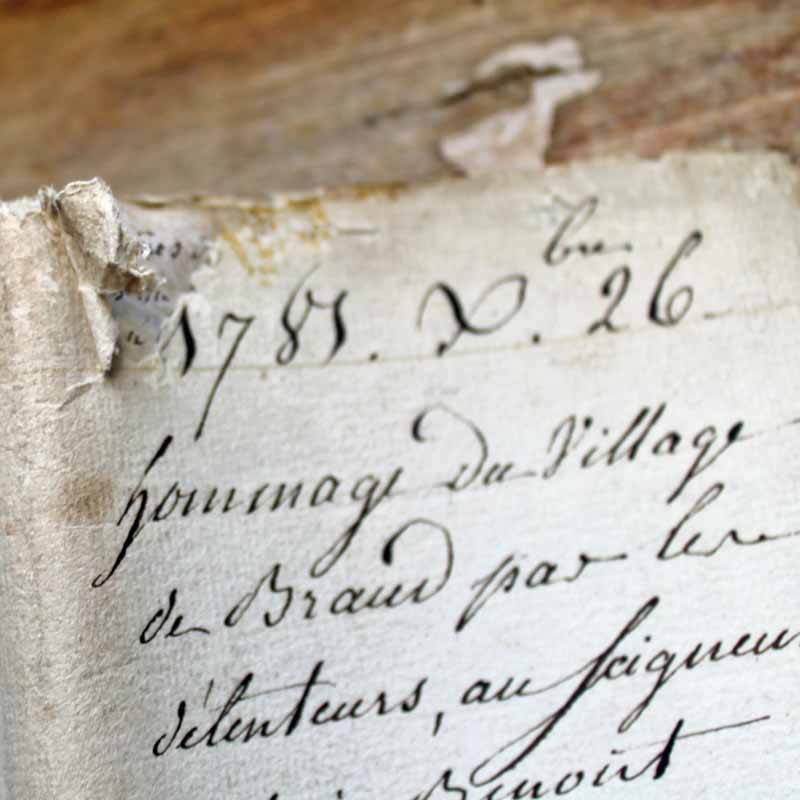 1781. X.bre 26.
hommage du Village
de Braud par les
détenteurs, au seigneur
Benoist